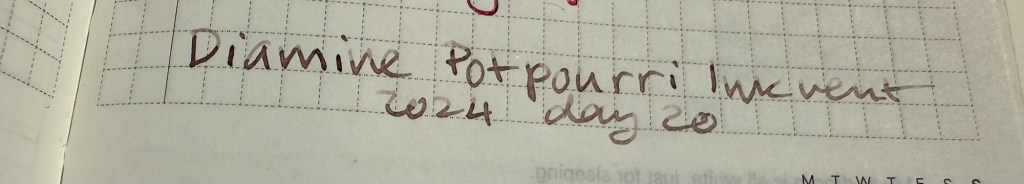 Diamine Potpourri Inkvent
2024 day 20
M T W T F S S